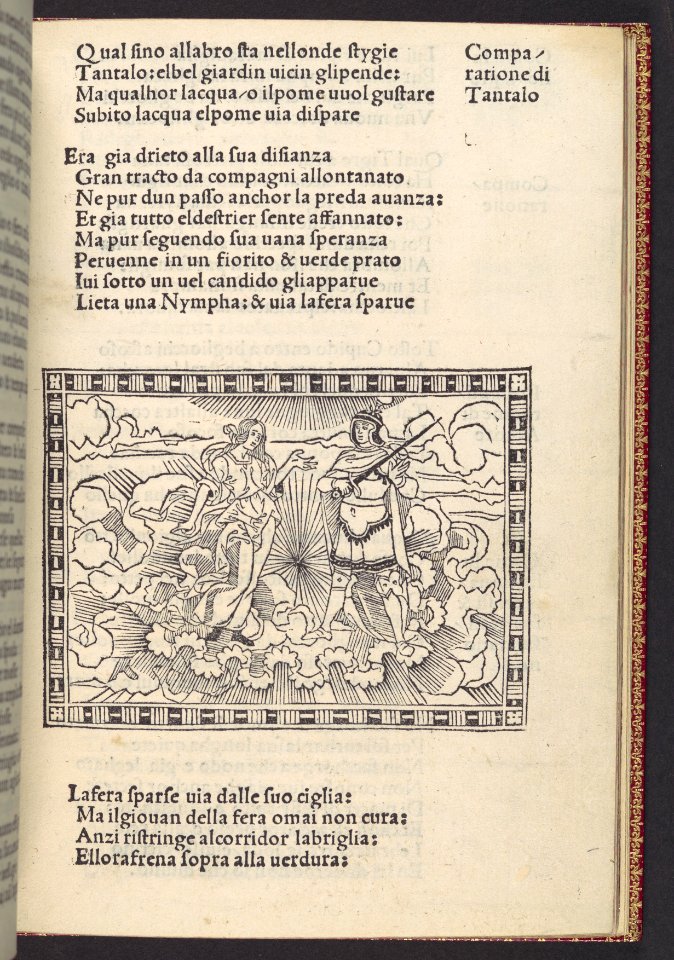 Qual sino allabro sta nellonde stygie
Tantalo: elbel giardin uicin glipende:
Ma qualhor lacqua/o ilpome uuol gustare
Subito lacqua elpome uia dispare
Compa/
ratione di
Tantalo
Era gia drieto alla sua disianza
Gran tracto da compagni allontanato
Ne pur dun passo anchor la preda auanza:
Et gia tutto eldestrier sente affannato:
Ma pur seguendo sua uana speranza
Peruenne in un fiorito & uerde prato
Iui sotto un uel candido gliapparue
Lieta una Nympha: & uia lafera sparue
Lafera sparse uia dalle suo ciglia:
Ma ilgiouan della fera omai non cura:
Anzi ristringe alcorridor labriglia:
Ellorafrena sopra alla uerdura: